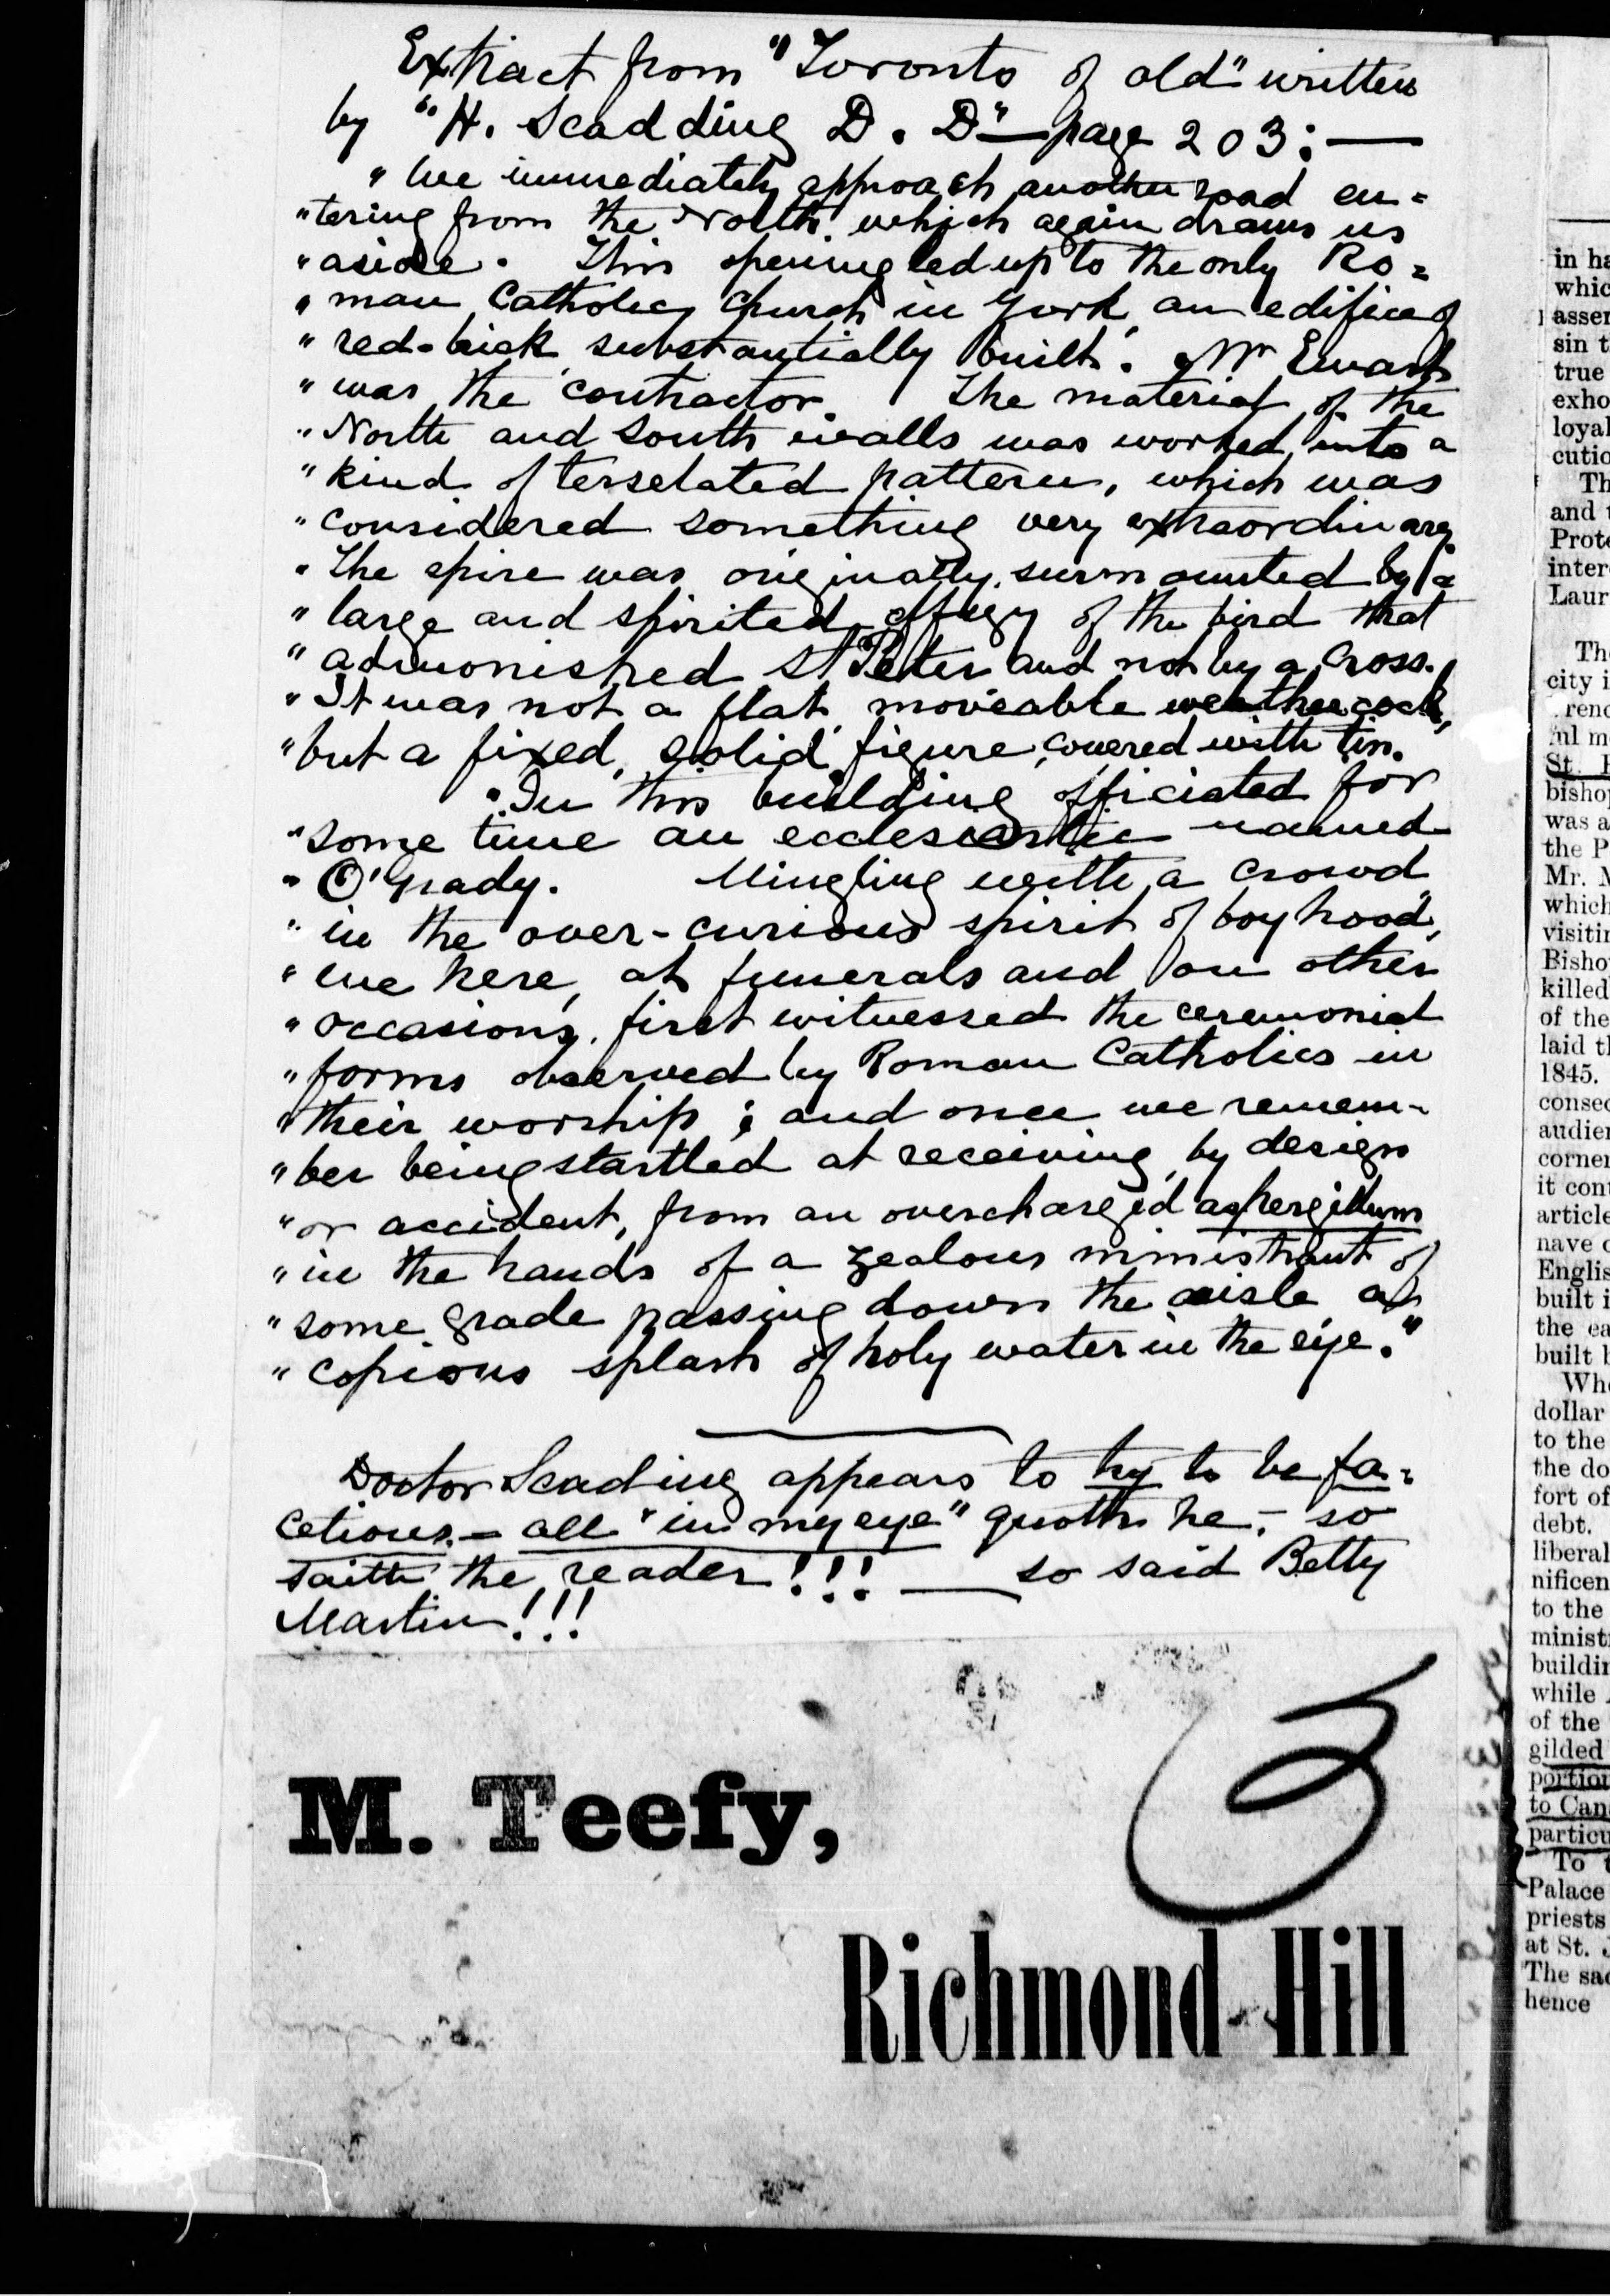 Extract from "Toronto of old" written
by "H. Scadding D. D" — page 203: —
" We immediately approach another road en=
"tering from the North, which again draws us
"aside. This opening led up to the only Ro=
" man Catholic Church in York, an edifice of
" red-brick, substantially built. Mr Ewart
" was the contractor. The material of the
" North and South walls was worked into a
" kind of terselated pattern, which was
" considered something very extraordinary.
" The spire was originally surmounted by a
" large and spirited effigy of the bird that
" admonished St Peter and not by a cross.
" It was not a flat, moveable weathercock,
"but a fixed, solid figure, covered with tin.
"In this building officiated for
"some time an ecclesiastic named
" O'Grady. Mingling with a crowd
" in the over-curious spirit of boyhood,
" we here, at funerals and on other
" occasions, first witnessed the ceremonial
" forms observed by Roman Catholics in
" their worship; and once we remem-
" ber being startled at receiving, by design
" or accident, from an overcharg'd aspergillum
" in the hands of a zealous ministrant of
" some grade passing down the aisle a
" copious splash of holy water in the eye."
Doctor Scading appears to try to be fa=
cetious.— all "in my eye" quoth he,- so
saith the reader!!! — so said Betty
Martin!!!
M. Teefy,
3
Richmond Hill
in ha
whic
asser
sin t
true
exho
loyal
cutio
Th
and t
Prote
inter
Laur
The
city i
renc
ful m
St. P
bishop
was a
the P
Mr. M
which
visitin
Bishop
killed
of the
laid th
1845.
consec
audien
corner
it cont
article
nave o
Englis
built i
the ea
built b
Whe
dollar
to the
the do
fort of
debt.
liberal
nificen
to the
minist
buildin
while
of the
gilded
portion
to Can
particu
To t
Palace
priests
at St. J
The sac
hence